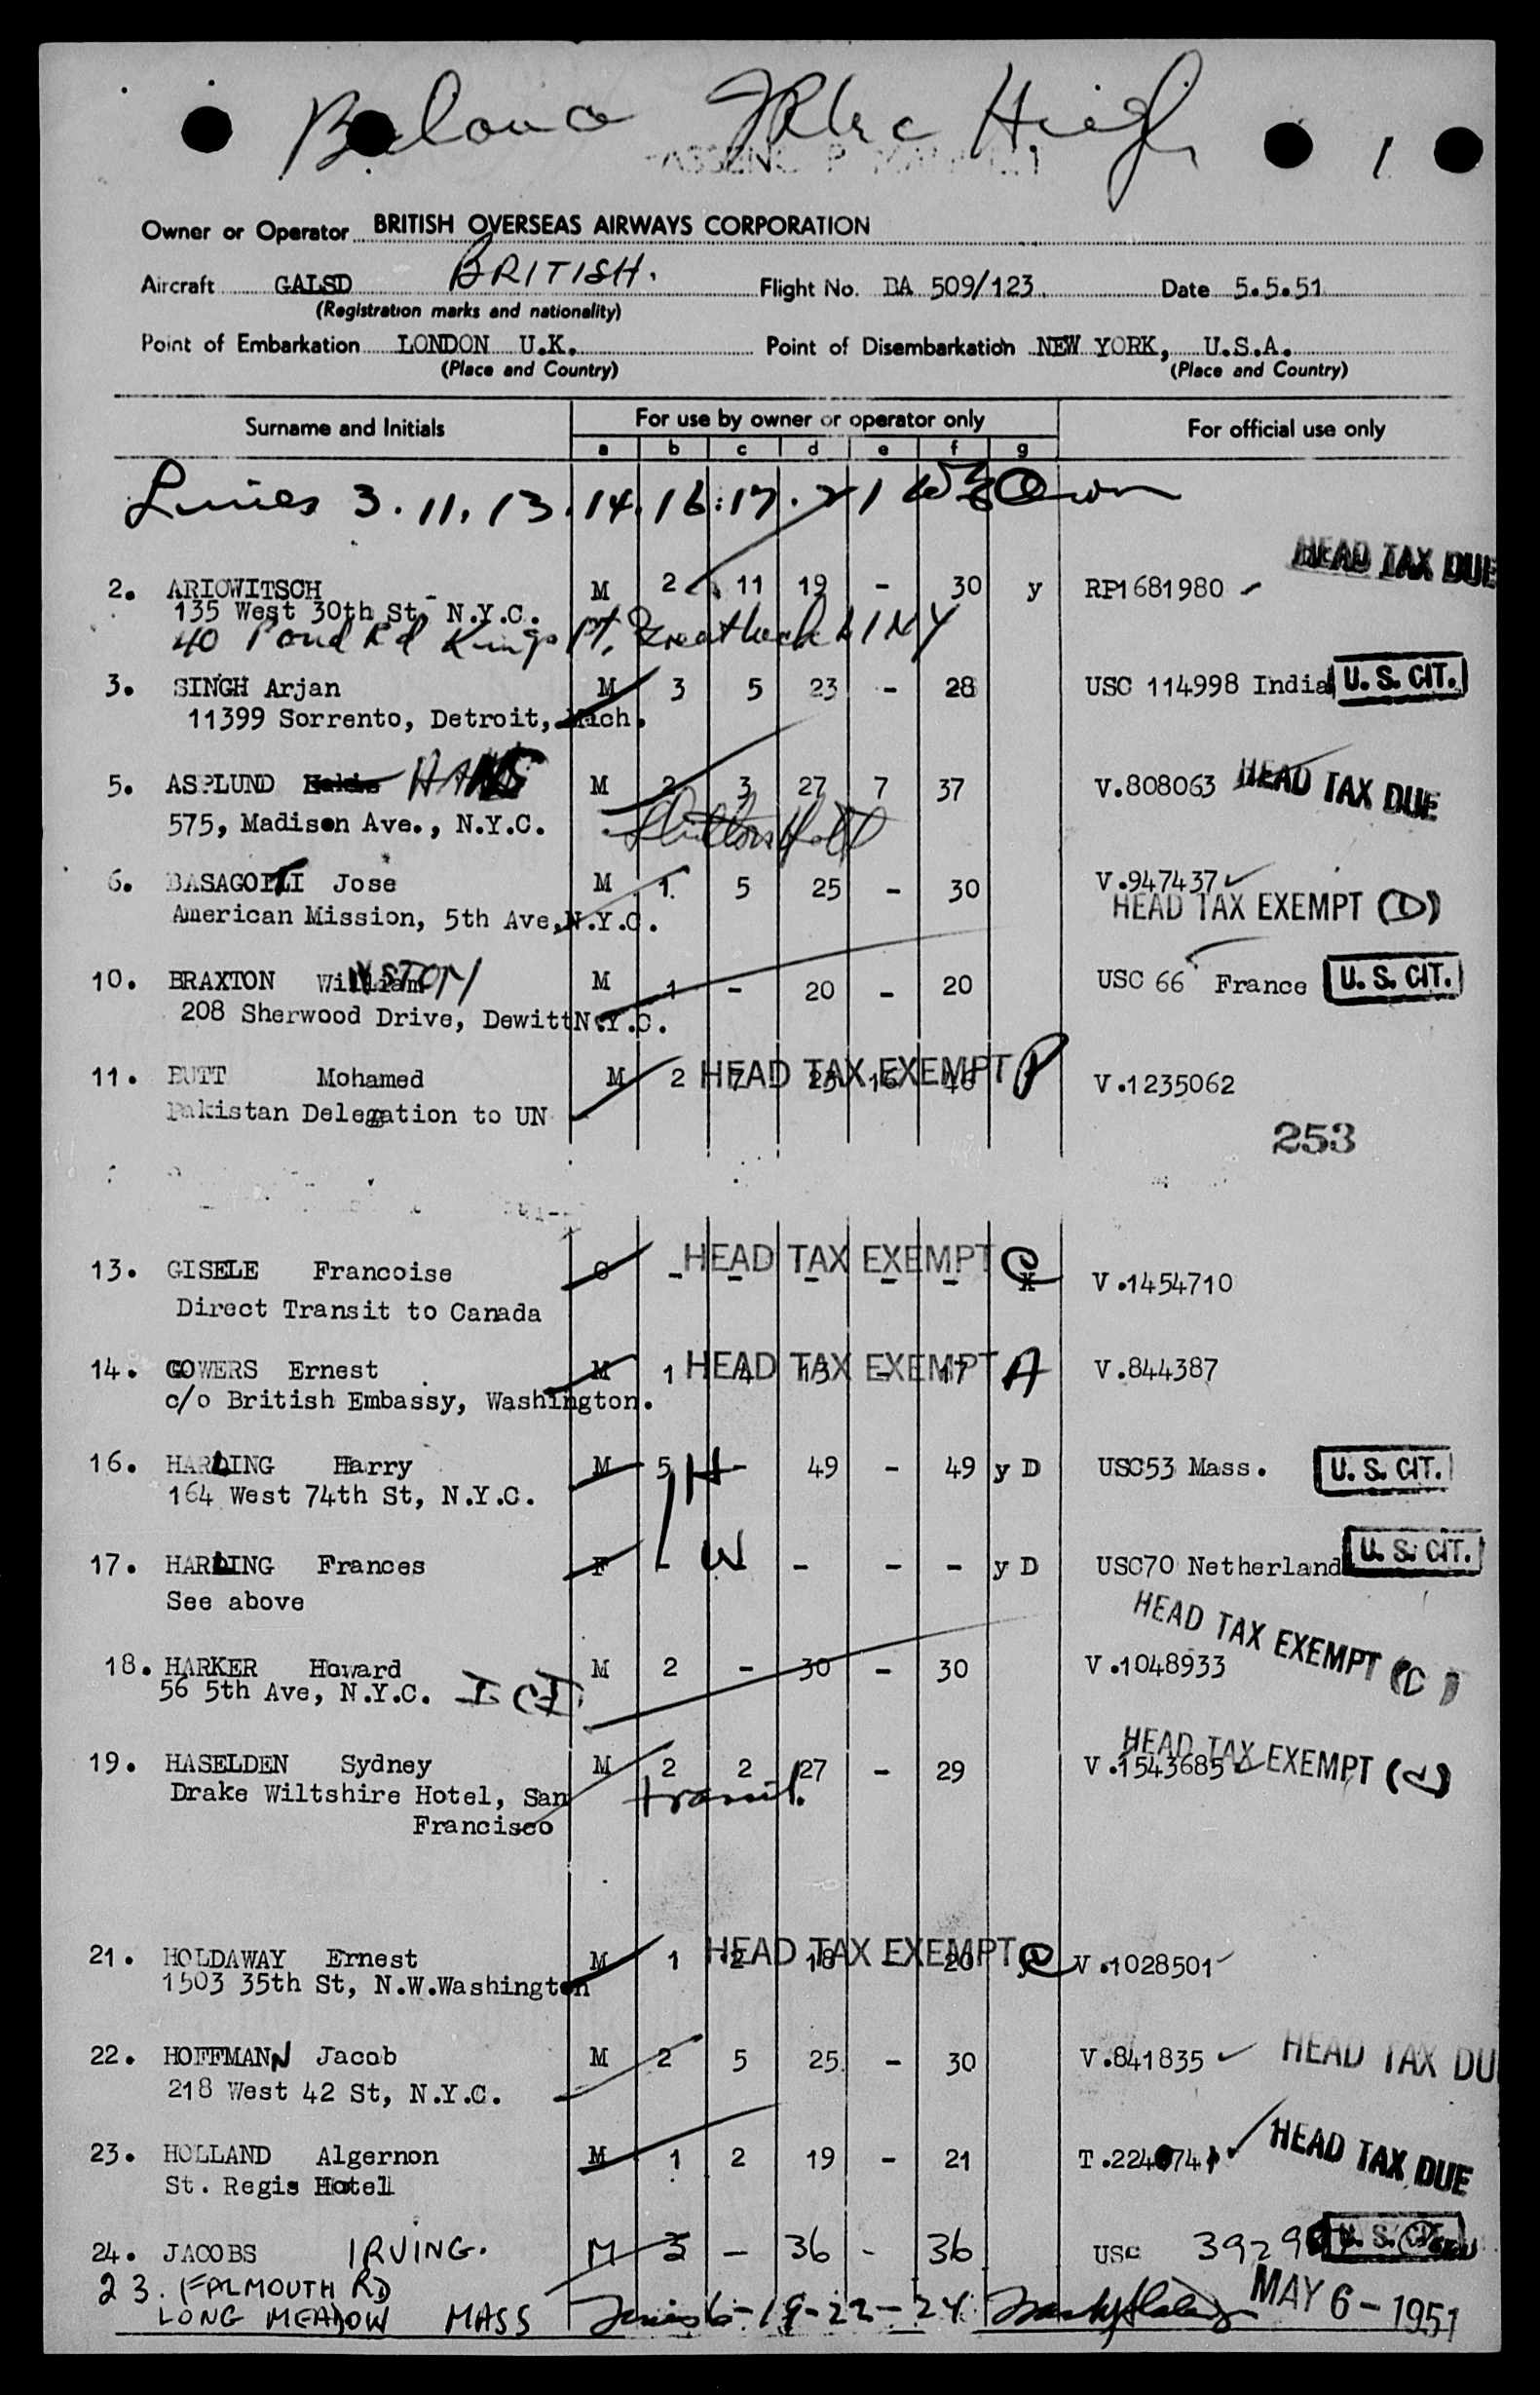 1
Owner or Operator BRITISH OVERSEAS AIRWAYS CORPORATION
Aircraft GALSD BRITISH. Flight No. BA 509/123 Date 5.5.51
(Registration marks and nationality)
Point of Embarkation LONDON U.K. Point of Disembarkation NEW YORK, U.S.A.
(Place and Country) (Place and Country)
Surname and Initials For use by owner or operator only For official use only
a b c d e f g
Lines 3. 11. 13. 14. 16. 17. 21
HEAD TAX DUE
2. ARIOWITSCH - M 2 11 19 - 30 y RP1681980
135 West 30th St, N.Y.C.
40 Pond Rd Kings Pt. Great Neck L I N Y
3. SINGH Arjan M 3 5 23 - 28 USC 114998 India U. S. CIT.
11399 Sorrento, Detroit, Mich.
5. ASPLUND HANS M 2 3 27 7 37 V.808063 HEAD TAX DUE
575, Madison Ave., N.Y.C.
6. BASAGOITI Jose M 1. 5 25 - 30 V.947437
American Mission, 5th Ave, N.Y.C. HEAD TAX EXEMPT (D)
10. BRAXTON WINSTON M 1 - 20 - 20 USC 66 France U. S. CIT.
208 Sherwood Drive, Dewitt N.Y.C.
11. BUTT Mohamed M 2 7 23 16 46 HEAD TAX EXEMPT P V.1235062
Pakistan Delegation to UN
253
13. GISELE Francoise G - - - - - X HEAD TAX EXEMPT C V.1454710
Direct Transit to Canada
14. GOWERS Ernest M 1 4 13 - 17 HEAD TAX EXEMPT A V.844387
c/o British Embassy, Washington.
16. HARLING Harry M 5 H - 49 - 49 y D USC53 Mass. U. S. CIT.
164 West 74th St, N.Y.C.
17. HARLING Frances F - W - - - y D USC70 Netherland U. S. CIT.
See above
HEAD TAX EXEMPT (C)
18. HARKER Howard M 2 - 30 - 30 V.1048933
56 5th Ave, N.Y.C. I C I
19. HASELDEN Sydney M 2 2 27 - 29 V.1543685 HEAD TAX EXEMPT
Drake Wiltshire Hotel, San transit.
Francisco
21. HOLDAWAY Ernest M 1 2 18 - 20 HEAD TAX EXEMPT V.1028501
1503 35th St, N.W.Washington
22. HOFFMANN Jacob M 2 5 25 - 30 V.841835 HEAD TAX DU
218 West 42 St, N.Y.C.
23. HOLLAND Algernon M 1 2 19 - 21 HEAD TAX DUE
St. Regis Hotel
24. JACOBS IRVING. M 3 - 36 - 36 USC U. S. CIT.
23. FALMOUTH RD
LONG MEADOW MASS 6-19-22-24 MAY 6-1951